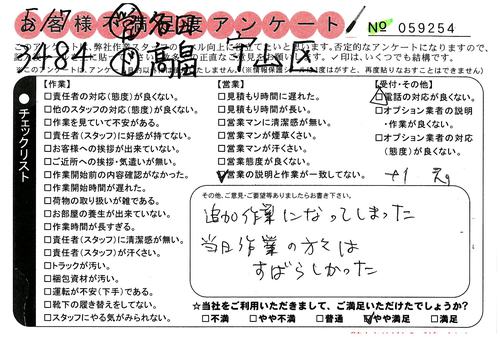 5/7
お客様不満足度アンケート
№ 059254
3484
このアンケートは、弊社作業スタッフのレベル向上に役立てたいと思います。否定的なアンケートになりますので、
チェックリスト
【作業】
□責任者の対応(態度)が良くない。
□他のスタッフの対応(態度)が良くない。
□作業を見ていて不安がある。
□責任者(スタッフ)に好感が持てない。
□お客様への挨拶が出来ていない。
□ご近所への挨拶・気遣いが無い。
□作業開始前の内容確認がなかった。
□作業開始時間が遅れた。
□荷物の取り扱いが雑である。
□お部屋の養生が出来ていない。
□作業時間が長すぎる。
□責任者(スタッフ)に清潔感が無い。
□責任者(スタッフ)が汗くさい。
□トラックが汚い。
□梱包資材が汚い。
□運転が不安(下手)である。
□靴下の履き替えをしてない。
□スタッフにやる気がみられない。
【営業】
□見積もり時間に遅れた。
□見積もり時間が長い。
□営業マンに清潔感が無い。
□営業マンが煙草くさい。
□営業マンが汗くさい。
□営業態度が良くない。
☑営業の説明と作業が一致してない。
【受付・その他】
□電話の対応が良くない。
□オプション業者の説明
・作業が良くない。
□オプション業者の対応
(態度)が良くない。
その他、ご意見・ご要望等ありましたらお書き下さい。
追加作業になってしまった
当日作業の方々は
すばらしかった
☆当社をご利用いただきまして、ご満足いただけたでしょうか?
□不満 □やや不満 □普通 ☑やや満足 □満足